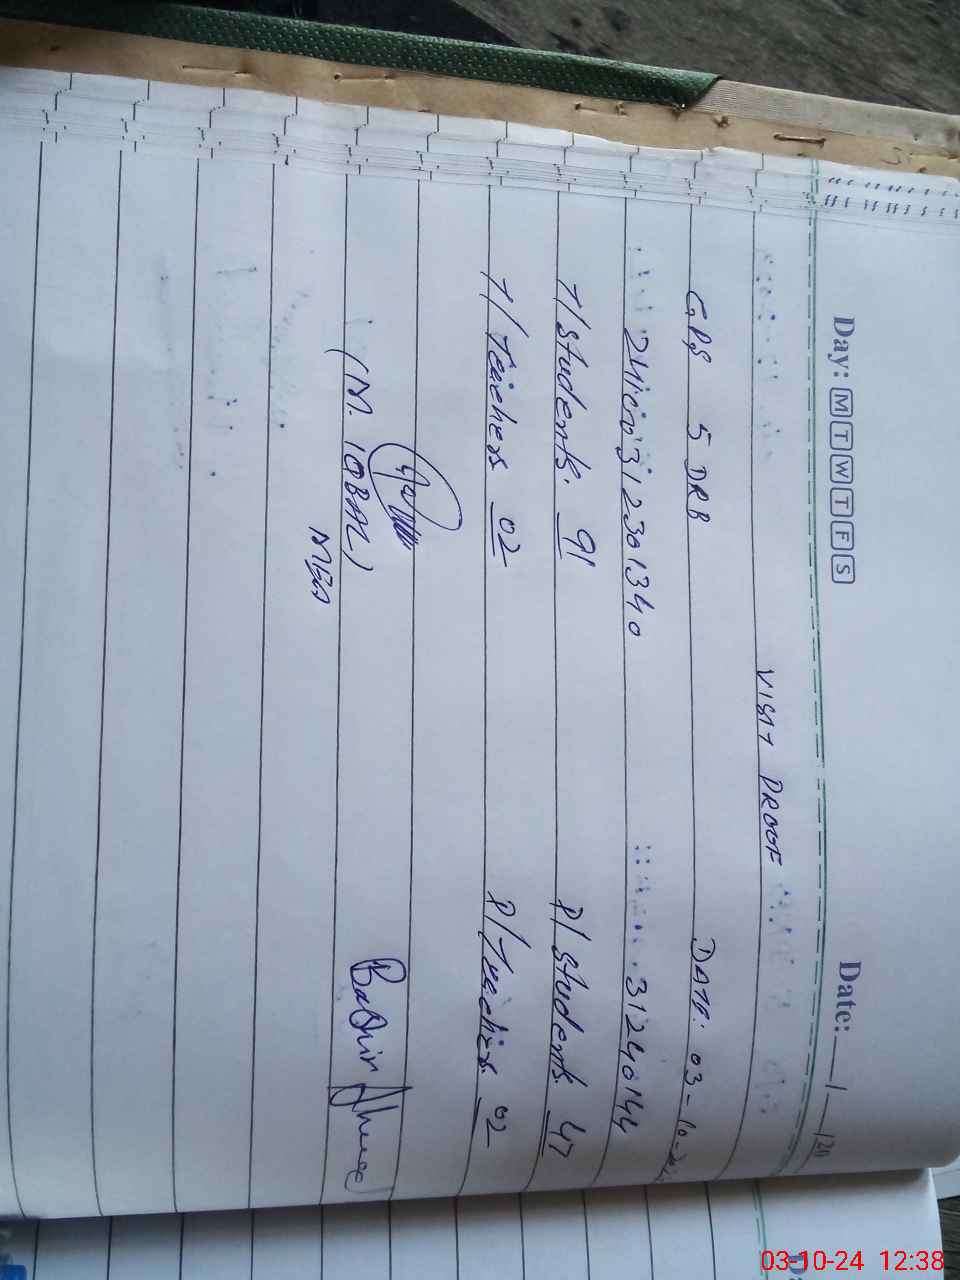 Day: M T W T F S Date: / /20
VISIT PROOF
GPS 5 DRB DATE: 03-10-
312301340 31240144
T/Students. 91 P/Students. 47
T/Teachers 02 P/Teachers. 02
(M. IQBAL) Bashir Ahmed
MEA
03-10-24 12:38